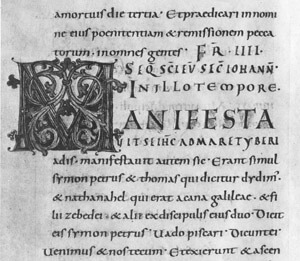 amortuis die tertia · Et praedicari in nomi
ne eius poenitentiam & remissionem pecca
torum · in omnes gentes · FR · IIII ·
SEQ SCI EV SEC IOHANN
IN ILLO TEMPORE ·
MANIFESTA
VIT SE IHC AD MARE TYBERI
adis · manifestavit autem se · Erant simul
symon petrus & thomas qui dicitur dydim'
& nathanahel qui erat a cana galileae · & fi
lii zebedei · & alii ex discipulis eius duo · Dicit
eis symon petrus · Vado piscari · Dicunt ei
Venimus & nos tecum · Et exierunt & ascen